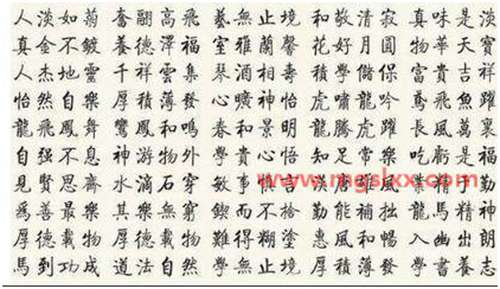 人淡如菊 奮翮高飛 藝無止境 和敬清寂 真味是淡
真金不鍍 養德澤福 室雅蘭馨 花好月圓 物華天寶
人杰地靈 千祥雲集 琴酒 壽 積學儲 富貴吉祥
怡然自樂 厚積薄發 心曠神怡 虎嘯龍吟 鳶飛魚躍
龍飛鳳舞 鸞鳳和鳴 春和景明 龍騰虎躍 長風萬裏
自强不息 神游物外 學貴心悟 知足常樂 吃虧是福
見賢思齊 水滴石穿
www.mgslxx.com
爲善最樂 其樂無窮 鍥而不捨 勤能補拙 龍馬精神
厚德載物 厚德載物 難得糊塗 惠風和暢 入幽出朗
馬到功成 道法自然 學無止境 厚積薄發 學書養志